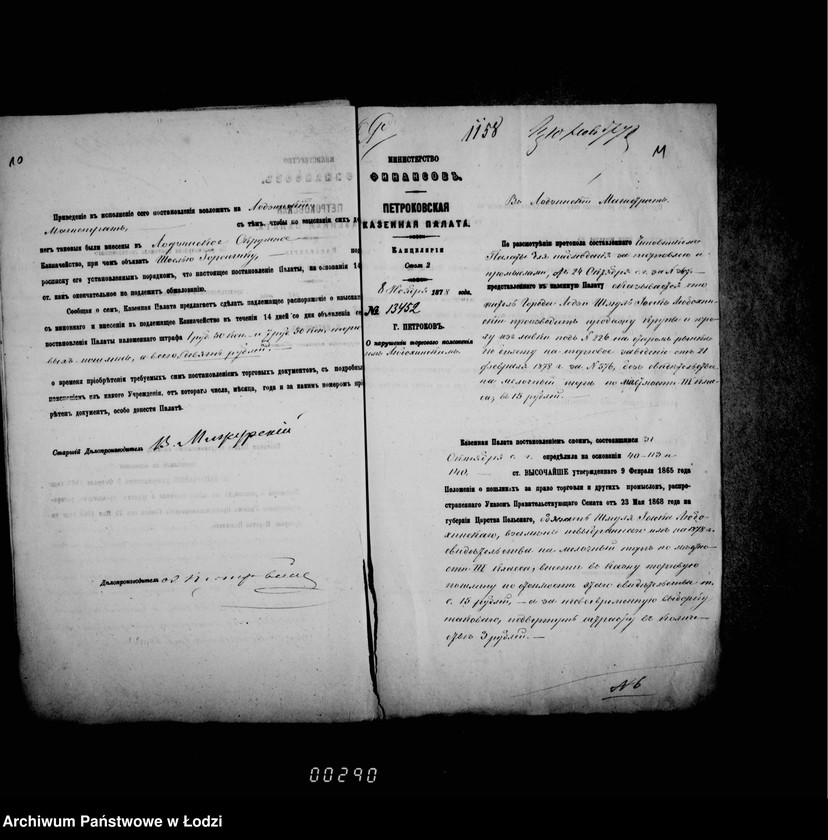 10
Приведеніе въ исполненіе сего постановленія возложить на Лодзинскій
Магистратъ, съ тѣмъ, чтобы по взысканіи сихъ де
негъ таковыя были внесены въ Лодзинское Окружное
Казначейство, при чемъ объявить под
росписку его установленнымъ порядкомъ, что настоящее постановленіе Палаты, на основаніи 14
ст. какъ окончательное не подлежитъ обжалованію.
Сообщая о семъ, Казенная Палата предлагаетъ сдѣлать надлежащее распоряженіе о взысканіи
съ виновнаго и внесеніи въ подлежащее Казначейство въ теченіи 14 дней со дня объявленія се
постановленія Палаты наложеннаго штрафа 1 руб 50 коп. и 7 руб 50 коп.
выхъ пошлинъ, а всего девять рублей
о времени пріобрѣтенія требуемыхъ симъ постановленіемъ торговыхъ документовъ, съ подробны
поясненіемъ изъ какого Учрежденія, отъ котораго числа, мѣсяца, года и за какимъ номеромъ пр
рѣтенъ документъ, особо донести Палатѣ.
Старшій Дѣлопроизводитель
Дѣлопроизводитель
1158
11
МИНИСТЕРСТВО
ФИНАНСОВЪ.
ПЕТРОКОВСКАЯ
КАЗЕННАЯ ПАЛАТА.
Канцелярія
Столъ 2
8 Ноября 1878 года.
№ 13452
Г. ПЕТРОКОВЪ.
О нарушеніи торговаго положенія
Въ Лодзинскій Магистратъ.
По разсмотрѣніи протокола составленнаго Чиновникомъ
Палаты для надзора за торговлею и
промыслами, отъ 24 Октября с.г. за №
представленнаго въ казенную Палату оказывается что
житель города Лодзи Шмуль
производитъ продажу крупы и
изъ лавки подъ № 226 на старомъ рынкѣ
по билету на торговое заведеніе отъ 21
февраля 1878 г. за № 576, безъ свидѣтельства
на мелочный торгъ по мѣстности III клас
са, въ 15 рублей.
Казенная Палата постановленіемъ своимъ, состоявшимся 31
Октября с. г. опредѣлила на основаніи 40-113 и
110 ст. ВЫСОЧАЙШЕ утвержденнаго 9 Февраля 1865 года
Положенія о пошлинахъ за право торговли и другихъ промысловъ, распро-
страненнаго Указомъ Правительствующаго Сената отъ 23 Мая 1868 года на
губерніи Царства Польскаго, обязать Шмуля
на 1878 г.
свидѣтельства на мелочный торгъ по мѣстно
сти III класса, внести въ казну торговую
пошлину по стоимости этого свидѣтельства т.
е. 15 рублей, — а за несвоевременную выборку
таковаго, подвергнуть штрафу въ количе
ствѣ 3 рублей. —
№ 6
00290
Archiwum Państwowe w Łodzi